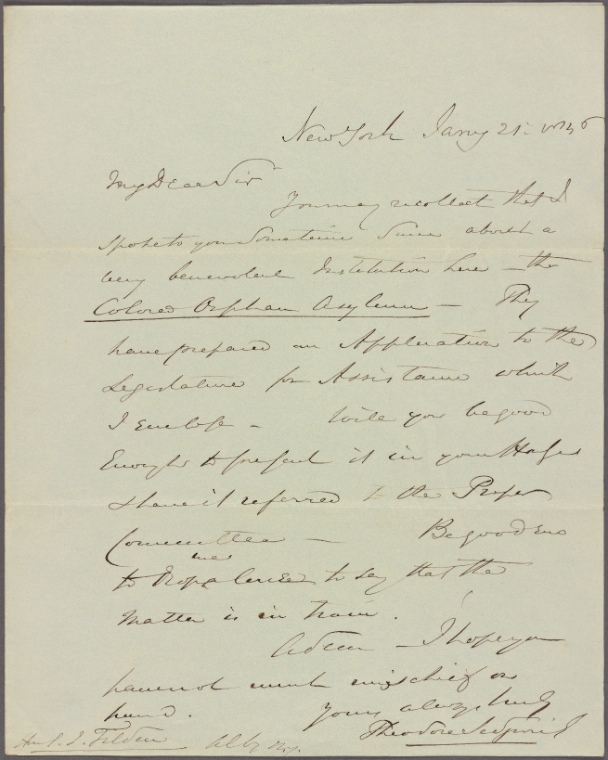 New York Jany 21. 1846
My Dear Sir
You may recollect that I
spoke to you sometime since about a
very benevolent Institution here — the
Colored Orphan Asylum — They
have prepared an Application to the
Legislature for Assistance which
I enclose — Will you be good
Enough to present it in your House
& have it referred to the Proper
Committee — Be good eno
to drop me a line to say that the
matter is in train.
Adieu — I hope you
have not much mischief on
hand. Yours always truly
Theodore Sedgwick
Hon S. J. Tilden Alby